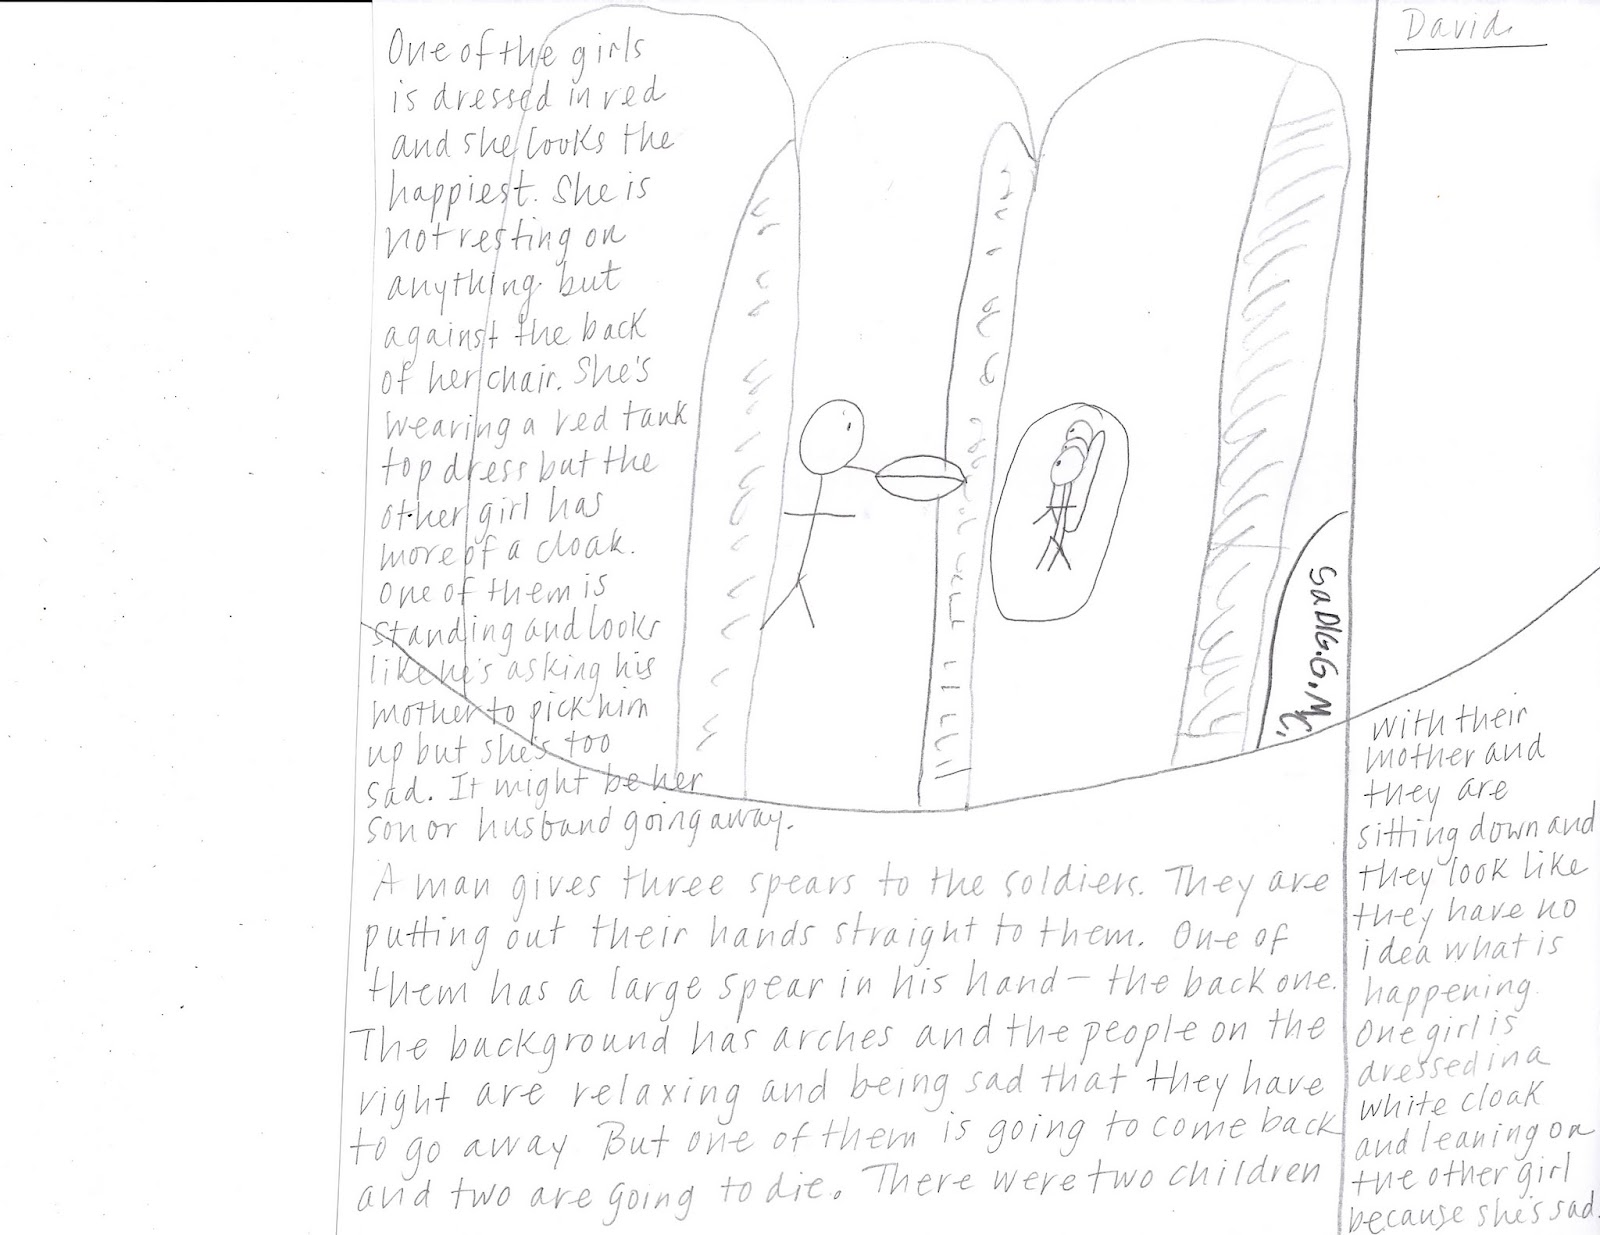 David
A man gives three spears to the soldiers. They are
putting out their hands straight to them. One of
them has a large spear in his hand — the back one.
The background has arches and the people on the
right are relaxing and being sad that they have
to go away But one of them is going to come back
and two are going to die. There were two children
with their
mother and
they are
sitting down and
they look like
they have no
idea what is
happening.
One girl is
dressed in a
white cloak
and leaning on
the other girl
because she's sad.
One of the girls
is dressed in red
and she looks the
happiest. She is
not resting on
anything but
against the back
of her chair. She's
wearing a red tank
top dress but the
other girl has
more of a cloak.
One of them is
standing and looks
like he's asking his
mother to pick him
up but she's too
sad. It might be her
son or husband going away.